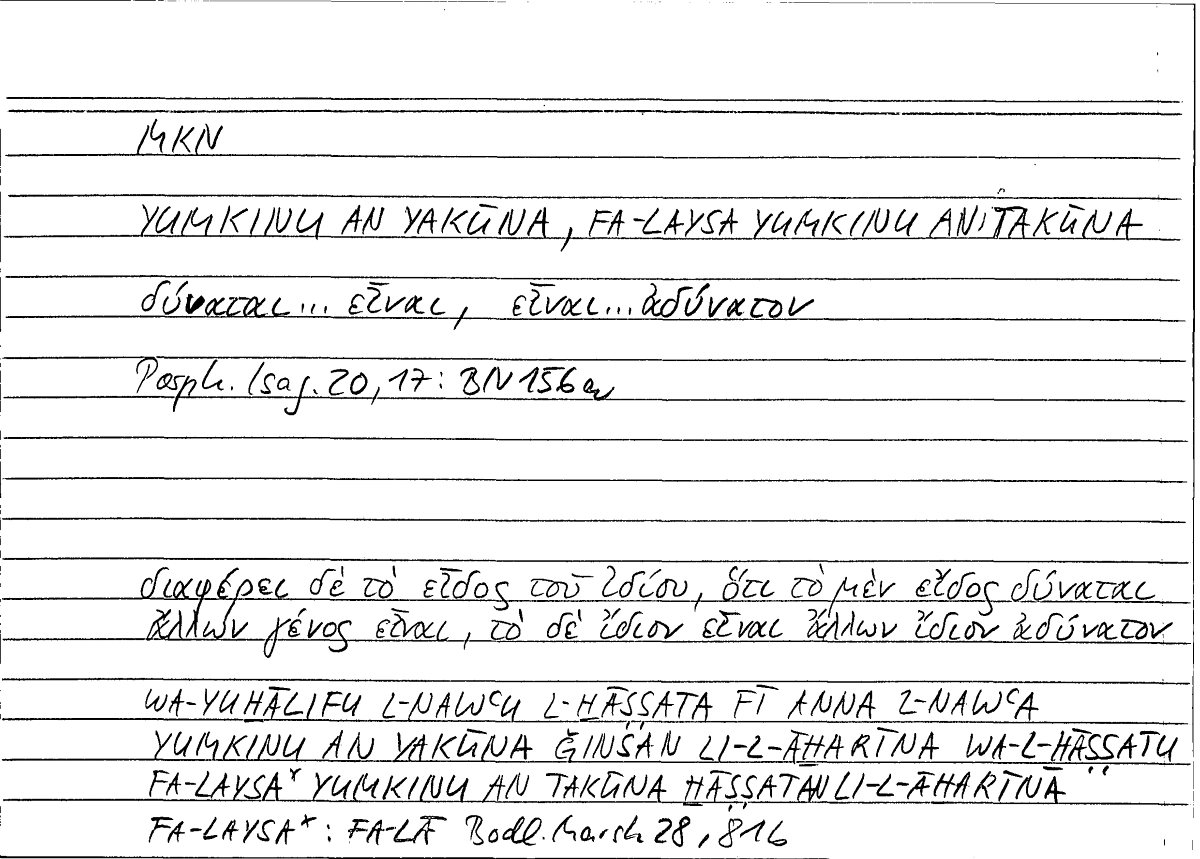 MKN
YUMKINU AN YAKŪNA, FA-LAYSA YUMKINU AN TAKŪNA
δύναται... εἶναι, εἶναι... ἀδύνατον
Porph. Isag. 20,17: BN 156a
διαφέρει δὲ τὸ εἶδος τοῦ ἰδίου, ὅτι τὸ μὲν εἶδος δύναται
ἄλλων γένος εἶναι, τὸ δὲ ἴδιον εἶναι ἄλλων ἴδιον ἀδύνατον
WA-YUḪĀLIFU L-NAWʿU L-ḪĀṢṢATA FĪ ANNA L-NAWʿA
YUMKINU AN YAKŪNA ǦINSAN LI-L-ĀḪARĪNA WA-L-ḪĀṢṢATU
FA-LAYSA* YUMKINU AN TAKŪNA ḪĀṢṢATAN LI-L-ĀḪARĪNA
FA-LAYSA*: FA-LĀ Bodl. Marsh 28, 816